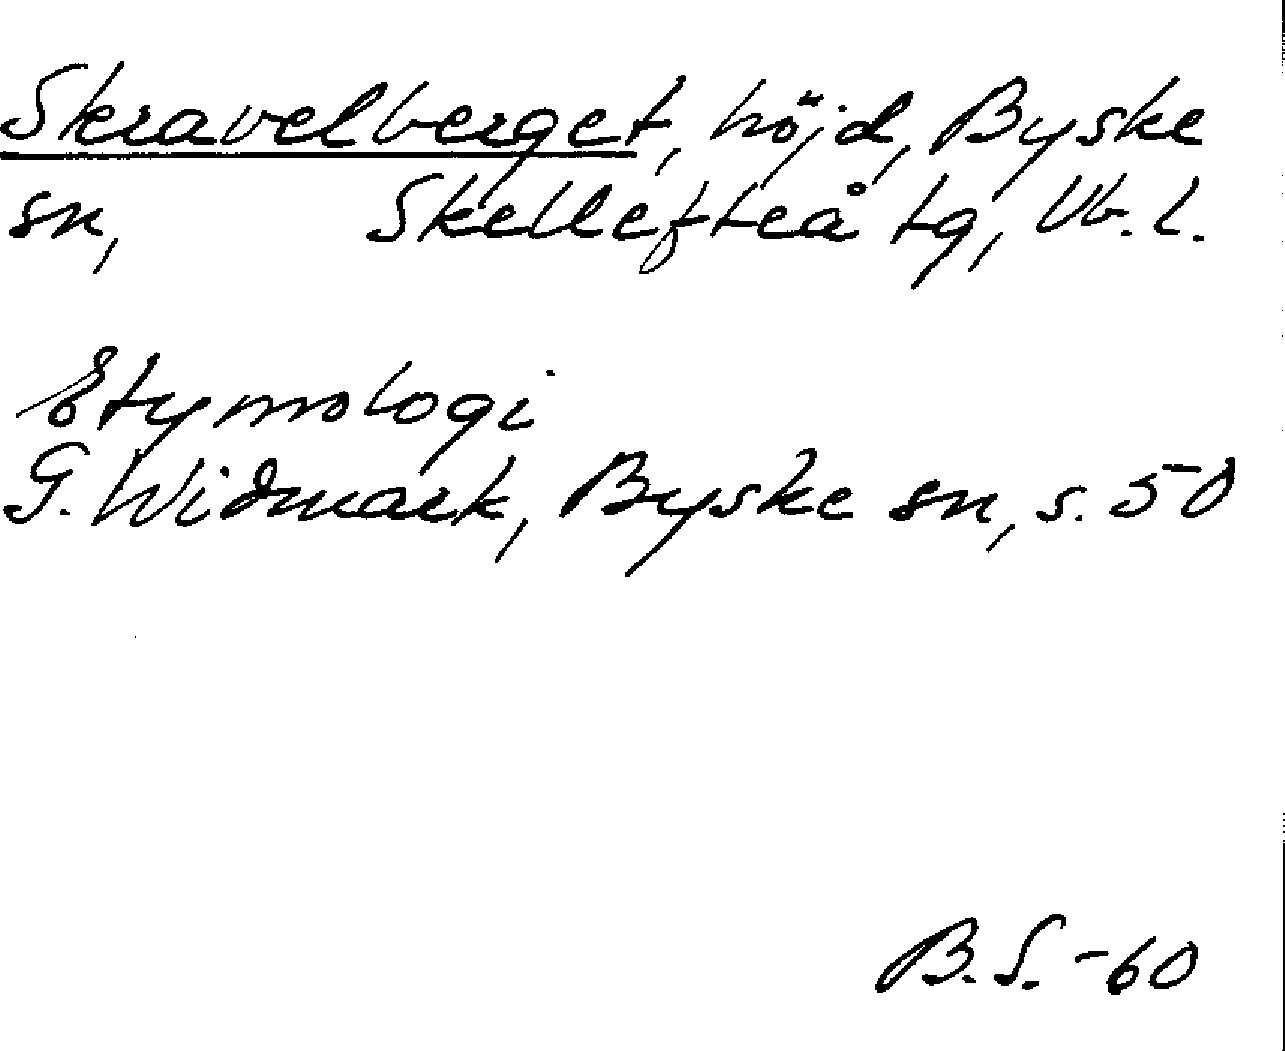 Skravelberget, höjd, Byske
sn, Skellefteå tg, Vb. l.
Etymologi
G. Widmark, Byske sn, s. 50
B.S. -60